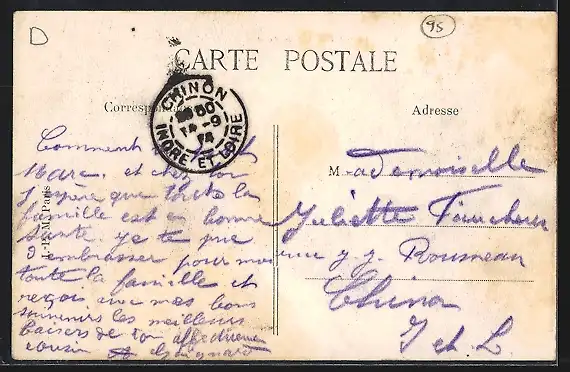 D
95
CARTE POSTALE
Correspo
Adresse
CHINON
14 - 9
14
INDRE ET LOIRE
J-P.M. Paris
Comment
Marc. et chez toi
J'espère que toute la
famille est en bonne
sante. Je te prie
d'embrasser pour moi
toute la famille et
reçois avec mes bons
souvenirs les meilleurs
baisers de ton affectueux
cousin
Mademoiselle
Juliette
rue J. J. Rousseau
Chinon
I et L.